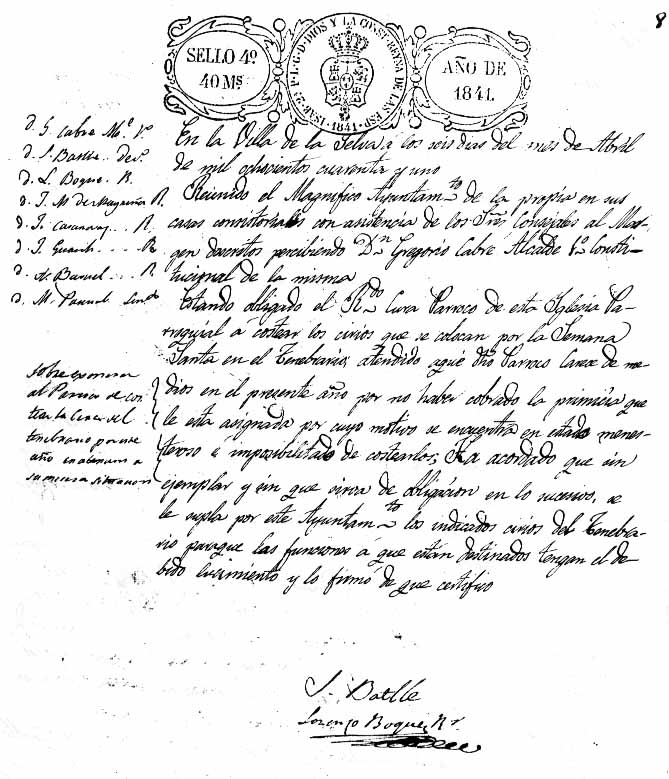 8
SELLO 4º
40 Ms
ISAB. 2ª P. L. G. D. DIOS Y LA CONST. REYNA DE LAS ESP.
1841
AÑO DE
1841.
D. G. Cabre M.º 1º
D. J. Batlle
D. L. Boque R.
D. J. M. R.
D. J. R.
D. J. Guasch R
D. A. R
D. M. Pascual
En la Villa de la Selva á los seis dias del mes de Abril
de mil ochocientos cuarenta y uno
Reunido el Magnifico Ayuntam.to de la propia en sus
casas consistoriales con asistencia de los Sres Consejales al Mar-
gen descritos Dn Gregorio Cabre Alcalde 1º Consti-
tucional de la misma
Estando obligado el Rdo Cura Parroco de esta Iglesia Pa-
rroquial a costear los cirios que se colocan por la Semana
Santa en el Tenebrario, atendido aque dho Parroco carece de me-
dios en el presente año por no haber cobrado la primicia que
le esta asignada por cuyo motivo se encuentra en estado menes-
teroso é imposibilitado de costearlos, Ha acordado que sin
ejemplar y sin que sirva de obligacion en lo sucesivo, se
le supla por este Ayuntam.to los indicados cirios del Tenebra-
rio paraque las funciones á que estan destinados tengan el de-
bido lucimiento y lo firmó de que certifico
sobre
al Parroco de cos-
tear la Cera del
tenebrario por este
año en atencion a
su misera situacion
J. Batlle
Lorenzo Boque, Rr.